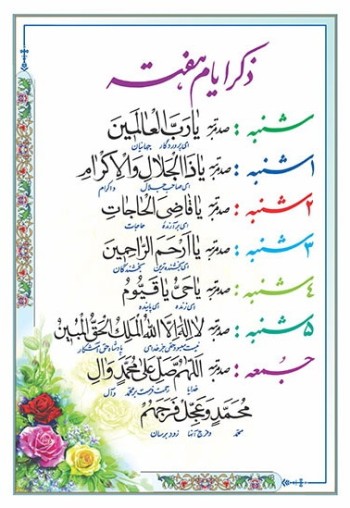 ذکر ایام هفته
شنبه : صد مرتبه یا رَبَّ الْعالَمینَ
ای پروردگار جهانیان
۱شنبه : صد مرتبه یا ذَا الْجَلالِ وَ الْاِکْرامِ
ای صاحب جلال و اکرام
۲شنبه : صد مرتبه یا قاضِیَ الْحاجاتِ
ای برآورنده حاجات
۳شنبه : صد مرتبه یا اَرْحَمَ الرّاحِمینَ
ای بخشنده‌ترین بخشندگان
۴شنبه : صد مرتبه یا حَیُّ یا قَیُّومُ
ای زنده ای پاینده
۵شنبه : صد مرتبه لا اِلهَ اِلَّا اللهُ الْمَلِکُ الْحَقُّ الْمُبینُ
نیست معبودی جز خدای پادشاه حق آشکار
جمعه : صد مرتبه اَللّهُمَّ صَلِّ عَلی مُحَمَّدٍ وَ الِ
خدایا رحمت فرست بر محمد و آل
مُحَمَّدٍ وَ عَجِّلْ فَرَجَهُمْ
محمد و فرج آنها زود برسان